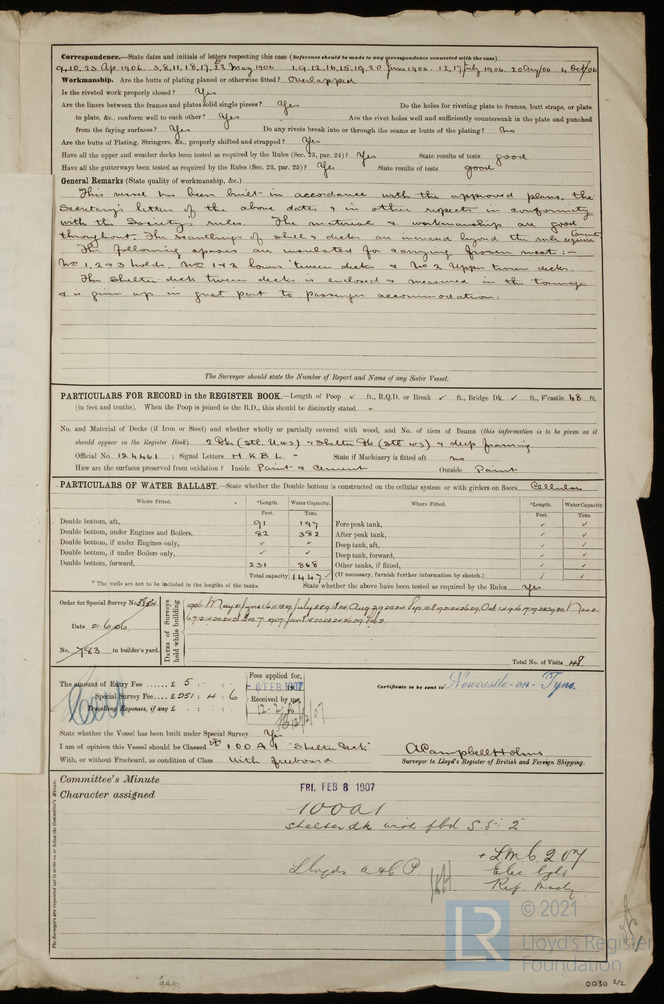 Correspondence.—State dates and initials of letters respecting this case (Reference should be made to any correspondence connected with the case)
9, 10, 23 Ap. 1906. 3, 8, 11, 18, 17, 22 May 1906 1, 9, 12, 16, 15, 19, 20 June 1906. 12, 17 July 1906 20 Aug/06 4 Oct/06
Workmanship. Are the butts of plating planed or otherwise fitted? Overlapped
Is the riveted work properly closed? Yes
Are the liners between the frames and plates solid single pieces? Yes Do the holes for riveting plate to frames, butt straps, or plate
to plate, &c., conform well to each other? Yes Are the rivet holes well and sufficiently countersunk in the plate and punched
from the faying surfaces? Yes Do any rivets break into or through the seams or butts of the plating? No
Are the butts of Plating, Stringers, &c., properly shifted and strapped? Yes
Have all the upper and weather decks been tested as required by the Rules (Sec. 23, par. 24)? Yes State results of tests good
Have all the gutterways been tested as required by the Rules (Sec. 23, par. 25)? Yes State results of tests good
General Remarks (State quality of workmanship, &c.)
This vessel has been built in accordance with the approved plans, the
Secretary's letters of the above dates & in other respects in conformity
with the Society's rules. The material & workmanship are good
throughout. The scantlings of shell & decks are increased beyond the rule requirements
The following spaces are insulated for carrying frozen meat:—
Nos 1, 2 & 3 holds, Nos 1 & 2 lower 'tween decks & No 2 Upper tween decks.
The Shelter deck tween decks is enclosed & measured in the tonnage
& is given up in great part to passenger accommodation.
The Surveyor should state the Number of Report and Name of any Sister Vessel.
PARTICULARS FOR RECORD in the REGISTER BOOK.—Length of Poop ✓ ft., R.Q.D. or Break ✓ ft., Bridge Dk. ✓ ft., F'castle 48 ft.
(in feet and tenths). When the Poop is joined to the B.D., this should be distinctly stated
No. and Material of Decks (if Iron or Steel) and whether wholly or partially covered with wood, and No. of tiers of Beams (this information is to be given as it
should appear in the Register Book) 2 Dk (Stl. U.ws) & Shelter Dk (Stl ws) & deep framing
Official No. 124461 ; Signal Letters H K B L. State if Machinery is fitted aft no
How are the surfaces preserved from oxidation? Inside Paint & Cement Outside Paint
PARTICULARS OF WATER BALLAST.—State whether the Double bottom is constructed on the cellular system or with girders on floors Cellular
Where Fitted. *Length. Water Capacity. Where Fitted. *Length. Water Capacity.
Feet. Tons. Feet. Tons.
Double bottom, aft, 91 197 Fore peak tank, ✓ ✓
Double bottom, under Engines and Boilers, 82 382 After peak tank, ✓ ✓
Double bottom, if under Engines only, ✓ ✓ Deep tank, aft, ✓ ✓
Double bottom, if under Boilers only, ✓ ✓ Deep tank, forward, ✓ ✓
Double bottom, forward, 231 868 Other tanks, if fitted, ✓ ✓
Total capacity 1447 (If necessary, furnish further information by sketch.)
* The wells are not to be included in the lengths of the tanks. State whether the above have been tested as required by the Rules Yes
Order for Special Survey No.
Date 21.6.06
No. 783 in builder's yard.
Dates of Surveys held while building
Total No. of Visits 48
The amount of Entry Fee £ 5 : :
Special Survey Fee £ 251 : 4 : 6
Travelling Expenses, if any £ : :
Fees applied for,
6 FEB 1907
Received by me,
Certificate to be sent to Newcastle-on-Tyne.
State whether the Vessel has been built under Special Survey Yes
I am of opinion this Vessel should be Classed 100A1 "Shelter deck"
With, or without Freeboard, as condition of Class With freeboard
A Campbell Holms
Surveyor to Lloyd's Register of British and Foreign Shipping.
The Surveyors are requested not to write on or below the Committee's Minute.
Committee's Minute FRI. FEB 8 1907
Character assigned 100A1
Shelter dk with fbd
+ LMC 2 07
Lloyds A & C. P. Elec. light
Ref. Machy
LR
© 2021
Lloyd's Register
Foundation
0030 2/2